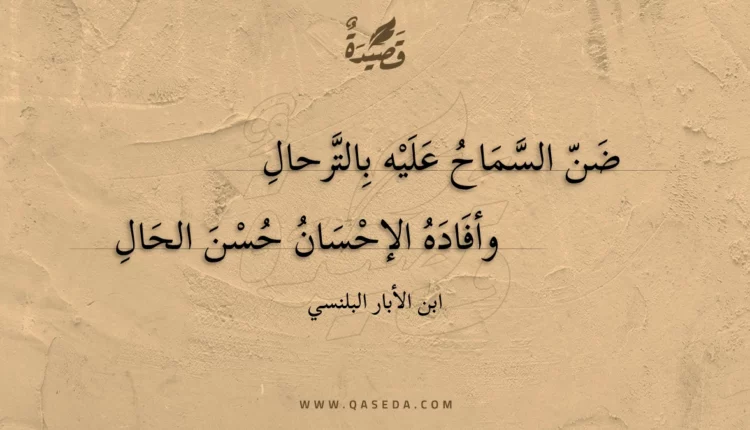 قَصِيدَةٌ
ضَنّ السَّمَاحُ عَلَيْه بِالتَّرحالِ
وأفَادَهُ الإحْسَانُ حُسْنَ الحَالِ
ابن الأبار البلنسي
WWW.QASEDA.COM